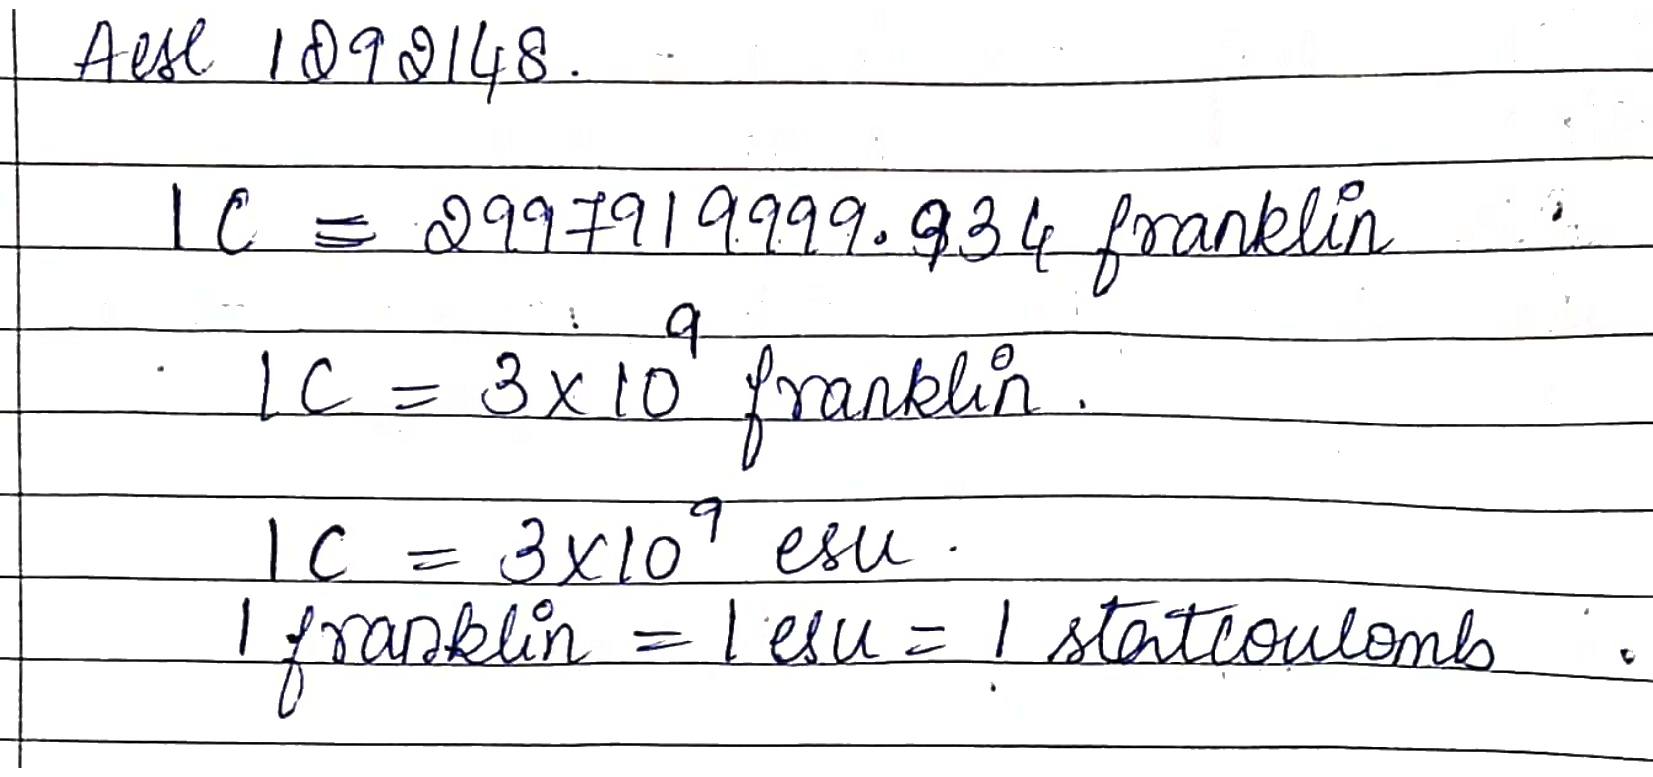 Aesl 1292148.
1 C = 2997919999.934 franklin
1 C = 3 x 10⁹ franklin.
1 C = 3 x 10⁹ esu.
1 franklin = 1 esu = 1 statcoulomb.